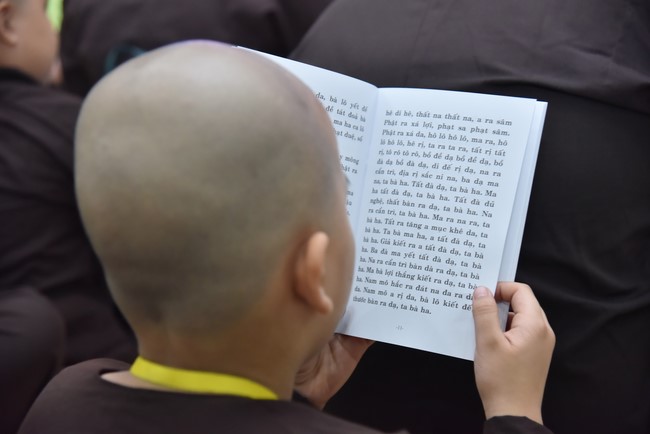 đa, bà lô yết đế
để tát đoả bà
ma ha ca lô
phạt duệ, số
mông
hê di hê, thất na thất na, a ra sâm
Phật ra xá lợi, phạt sa phạt sâm.
Phật ra xá da, hô lô hô lô, ma ra, hô
lô hô lô, hê rị, ta ra ta ra, tất rị tất
rị, tô rô tô rô, bồ đề dạ bồ đề dạ, bồ
đà dạ bồ đà dạ, di đế rị dạ, na ra
cẩn trì, địa rị sắc ni na, ba dạ ma
na, ta bà ha. Tất đà dạ, ta bà ha. Ma
ha tất đà dạ, ta bà ha. Tất đà dủ
nghệ, thất bàn ra dạ, ta bà ha. Na
ra cẩn trì, ta bà ha. Ma ra na ra, ta
bà ha. Tất ra tăng a mục khê da, ta
bà ha. Ta bà ma ha, a tất đà dạ, ta
bà ha. Giả kiết ra a tất đà dạ, ta bà
ha. Ba đà ma yết tất đà dạ, ta bà
ha. Na ra cẩn trì bàn đà ra dạ, ta bà
ha. Ma bà lợi thắng kiết ra dạ, ta bà
ha. Nam mô hắc ra đát na đa ra dạ
da. Nam mô a rị da, bà lô kiết đế
thước bàn ra dạ, ta bà ha.